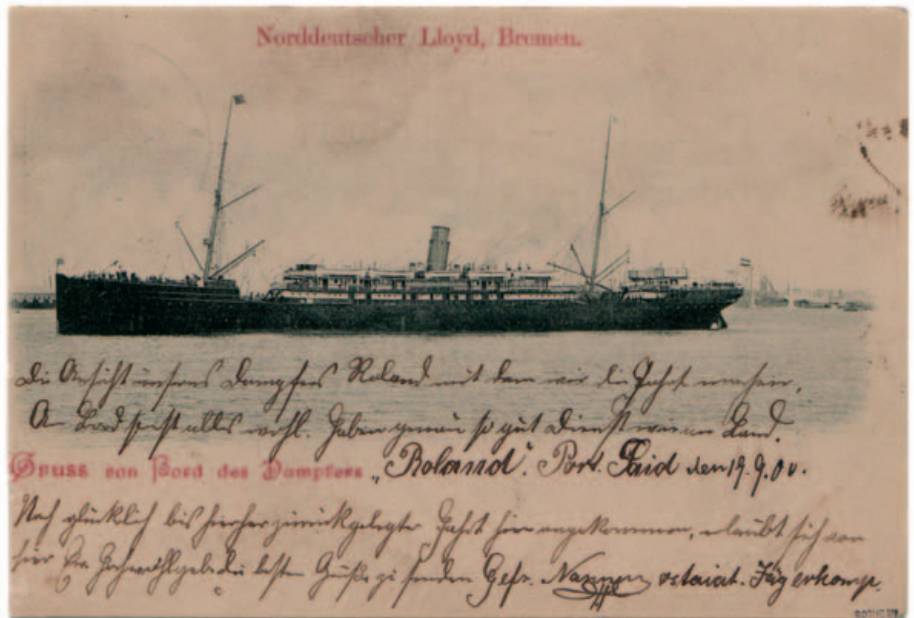 Norddeutscher Lloyd, Bremen.
Die Ansicht unseres Dampfers Roland mit dem wir die Fahrt machen,
An Bord ist alles wohl. Haben genau so gut Dienst wie an Land.
Gruss von Bord des Dampfers „Roland“. Port Said den 19.9.00.
Nach glücklich bis hierher zurückgelegter Fahrt hier angekommen, erlaubt sich von
hier Ew. Hochwohlgeb. die besten Grüße zu senden Gefr. ostasiat. Jägerkomp.